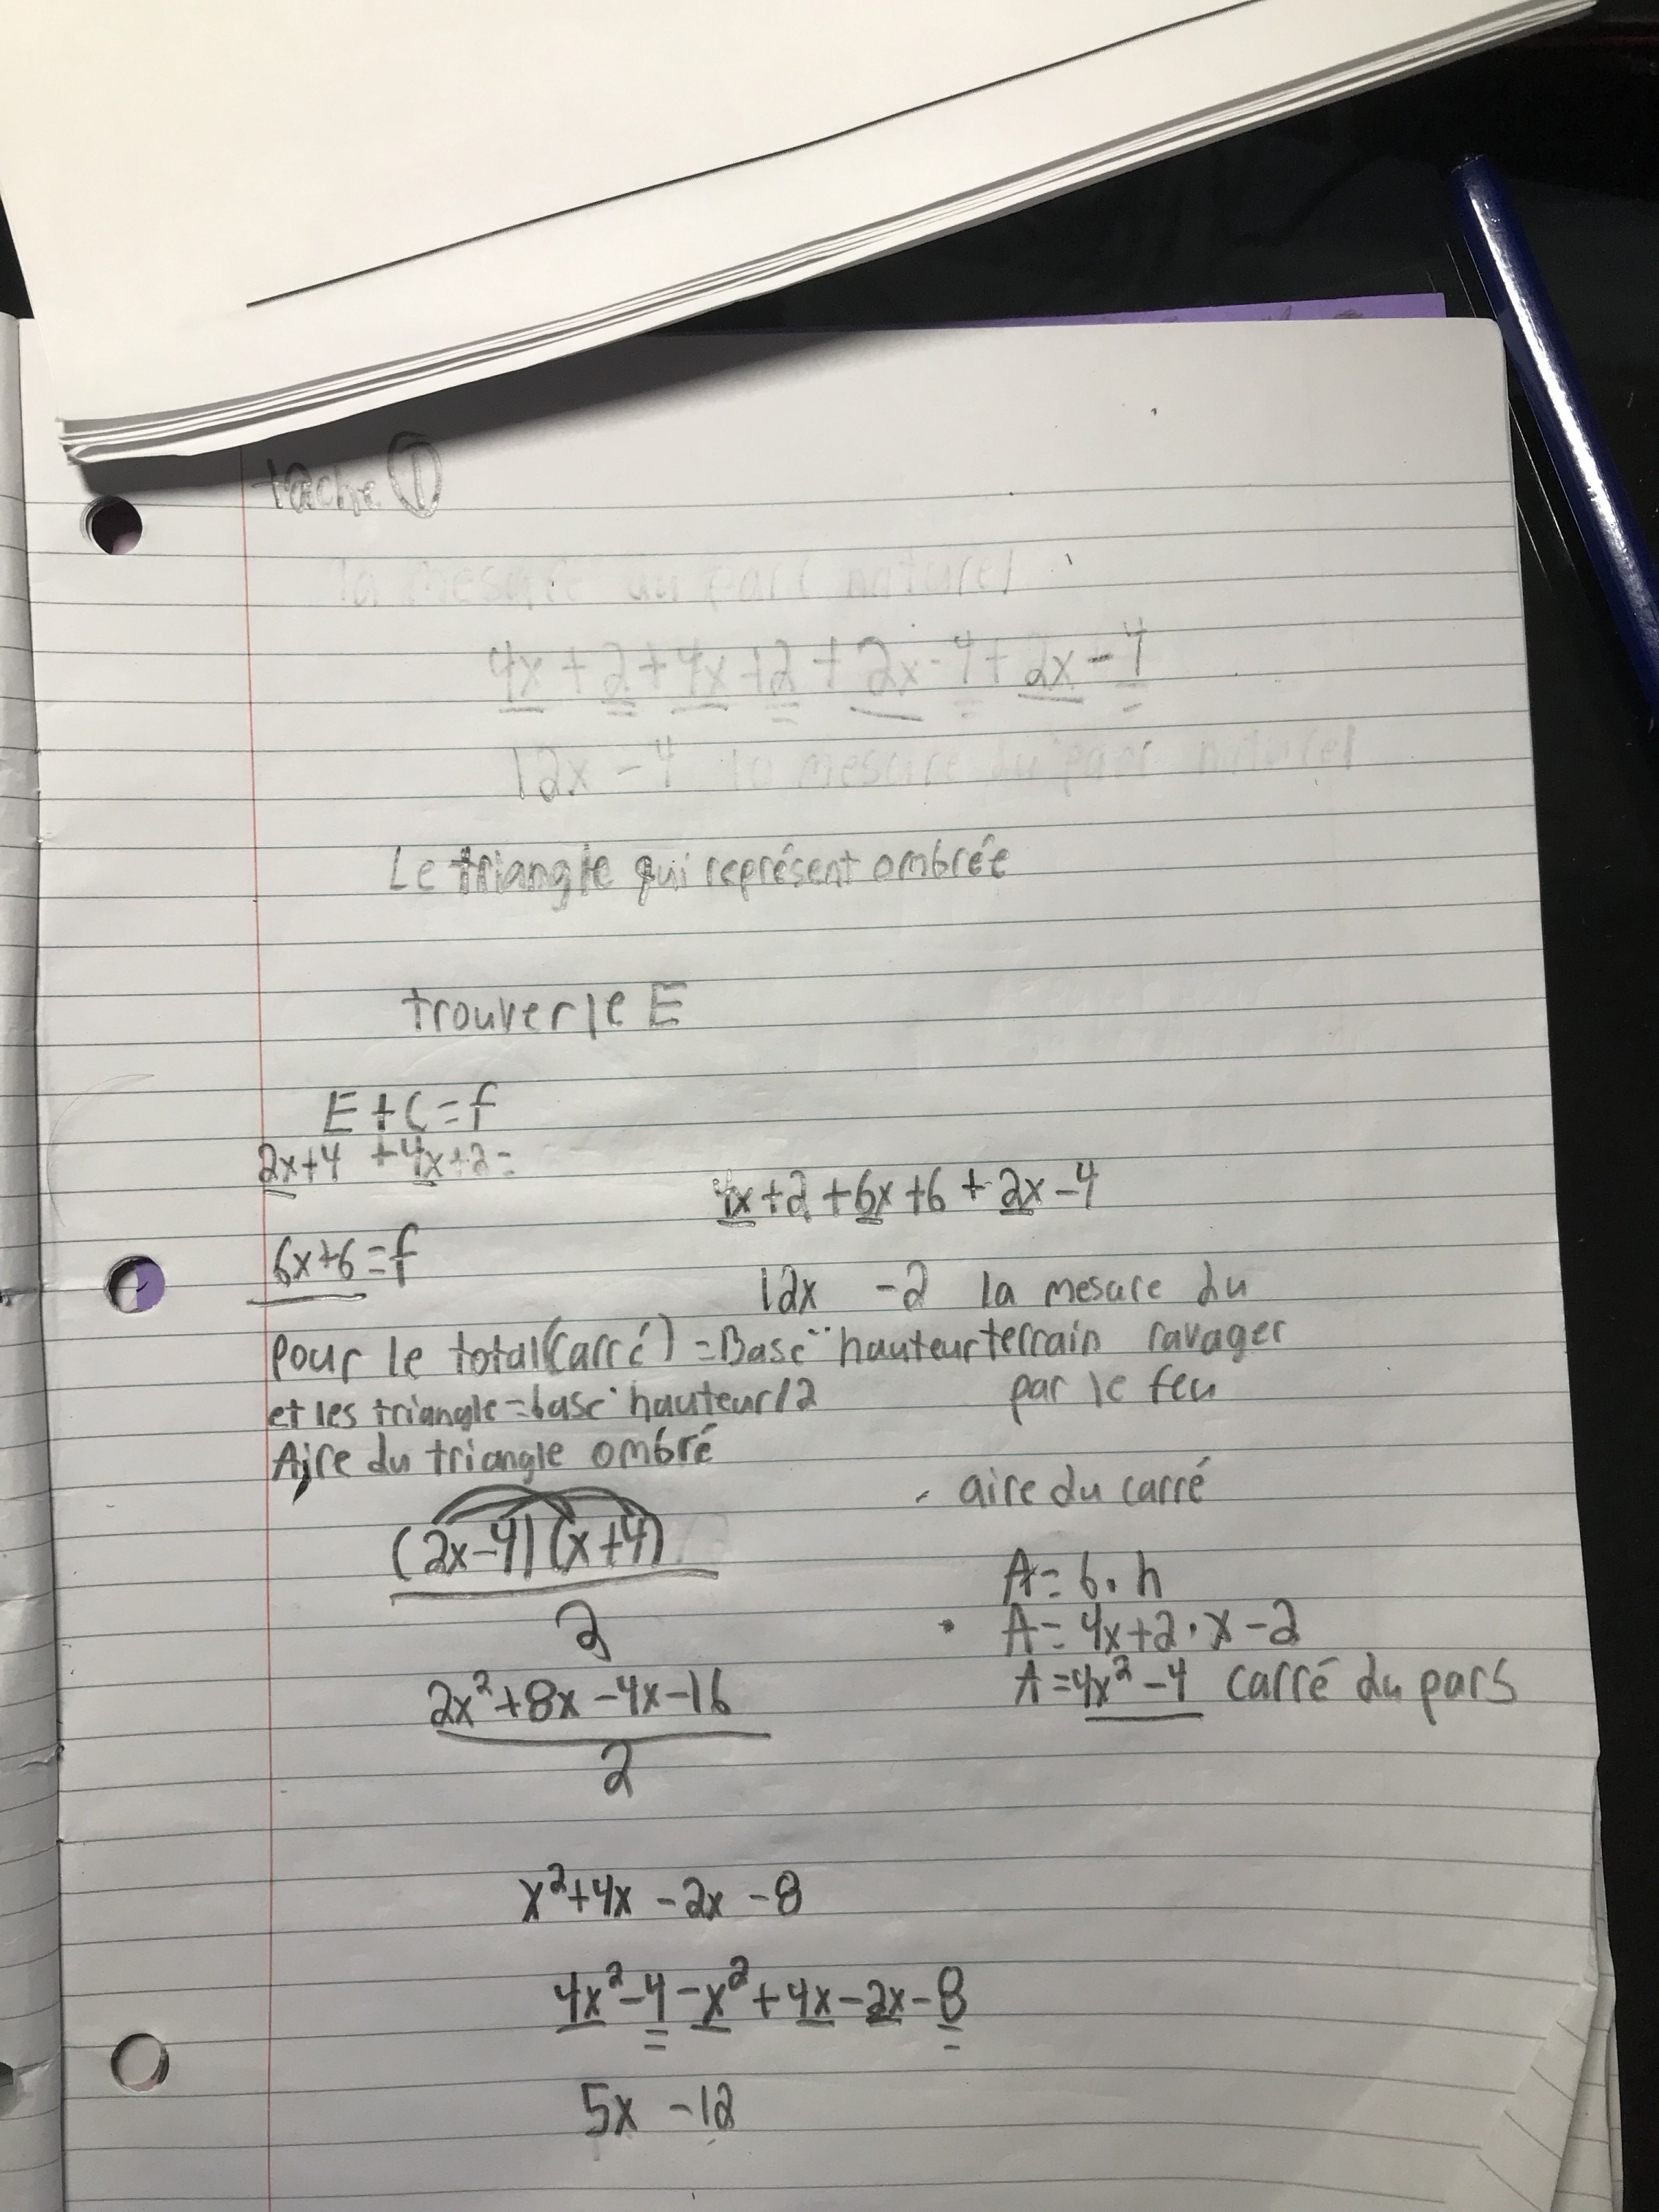 tache ①
la mesure du parc naturel
4x + 2 + 4x + 2 + 2x - 4 + 2x - 4
12x - 4 la mesure du parc naturel
Le triangle qui représent ombrée
trouver le E
E + C = f
2x+4 + 4x+2 =
6x+6 = f
4x+2+6x+6+2x-4
12x -2 la mesure du
terrain ravager
par le feu
pour le total(carré) = Base · hauteur
et les triangle = base · hauteur/2
Aire du triangle ombré
(2x-4)(x+4)
2
2x²+8x-4x-16
2
x²+4x -2x -8
4x²-4-x²+4x-2x-8
5x -12
aire du carré
A = b·h
A = 4x+2·x-2
A = 4x²-4 carré du pars